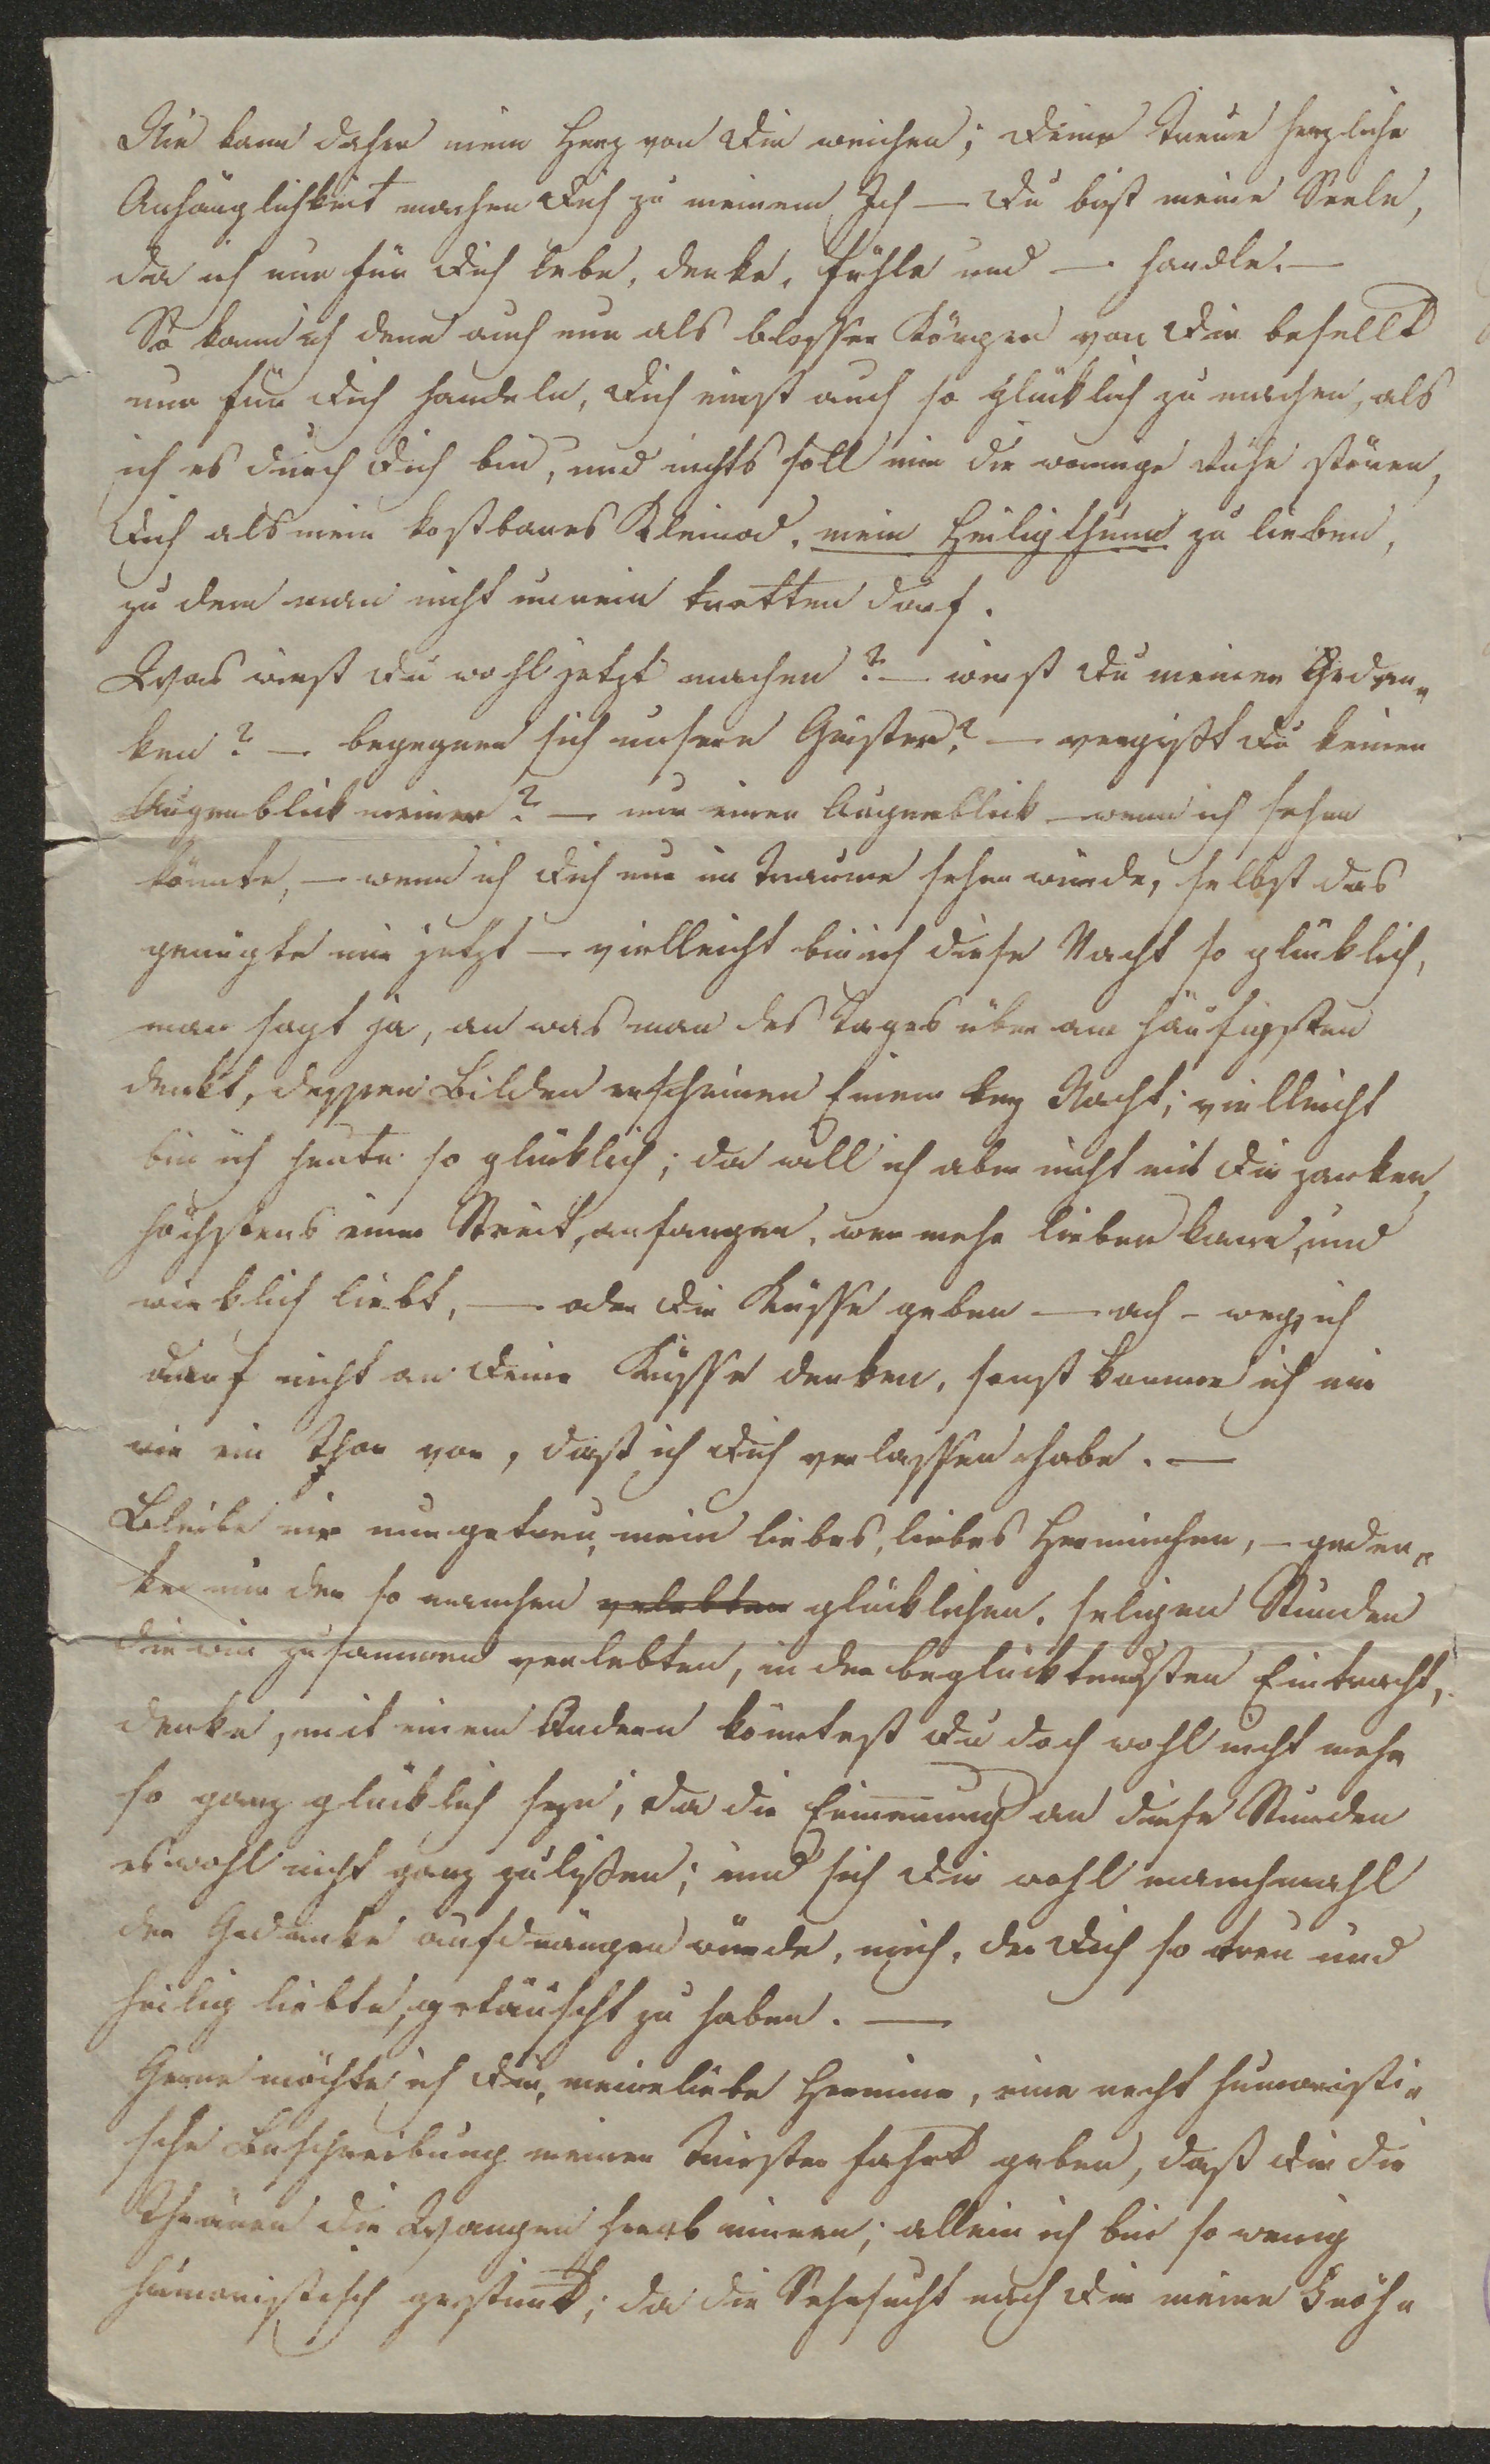 Nie kann daher mein Herz von Dir weichen; Deine treue herzliche
Anhänglichkeit machen Dich zu meinem Ich — Du bist meine Seele,
da ich nur für Dich lebe, denke, fühle und — handle. —
So kann ich denn auch nur als blosser Körper von Dir beseellt
nur für Dich handeln, Dich einst auch so glücklich zu machen, als
ich es durch Dich bin, und nichts soll mir die wonnige Ruhe stören,
Dich als mein kostbares Kleinod, mein Heiligthum zu lieben,
zu dem man nicht unrein tretten darf.
Was wirst Du wohl jetzt machen? — wirst Du meiner Geden„
ken? — begegnen sich unsere Geister? — vergißt Du keinen
Augenblick meiner? — nur einen Augenblick — wenn ich sehen
könnte, — wenn ich Dich nur im Traume sehen würde, selbst das
genügte mir jetzt — vielleicht bin ich diese Nacht so glücklich,
man sagt ja, an was man des Tages über am häufigsten
denkt, dessen Bilder erscheinen Einem bey Nacht; vielleicht
bin ich heute so glücklich; da will ich aber nicht mit Dir zanken,
höchstens einen Streit anfangen, wer mehr lieben kann, und
wirklich liebt, — oder Dir Küsse geben — ach – weg, ich
darf nicht an Deine Küsse denken, sonst komme ich mir
wie ein Thor vor, daß ich Dich verlassen habe. —
Bleibe mir nur getreu, mein liebes, liebes Herminchen, – geden„
ke nur der so manchen verlebten glücklichen, seligen Stunden
die wir zusammen verlebten, in der beglücktendsten Eintracht,
denke, mit einem Andern könntest Du doch wohl nicht mehr
so ganz glücklich seyn, da die Erinnerung an diese Stunden
es wohl nicht ganz zuließen; und sich Dir wohl manchmahl
der Gedanke aufdrängen würde, mich, der Dich so treu und
heilig liebte, getäuscht zu haben. —
Gerne möchte ich Dir, meine liebe Hermine, eine recht humoristi„
sche Beschreibung meiner Triester fahrt geben, daß Dir die
Thränen die Wangen herab rinnen; allein ich bin so wenig
humoristisch gestimt; da die Sehnsucht nach Dir meine Fröh„